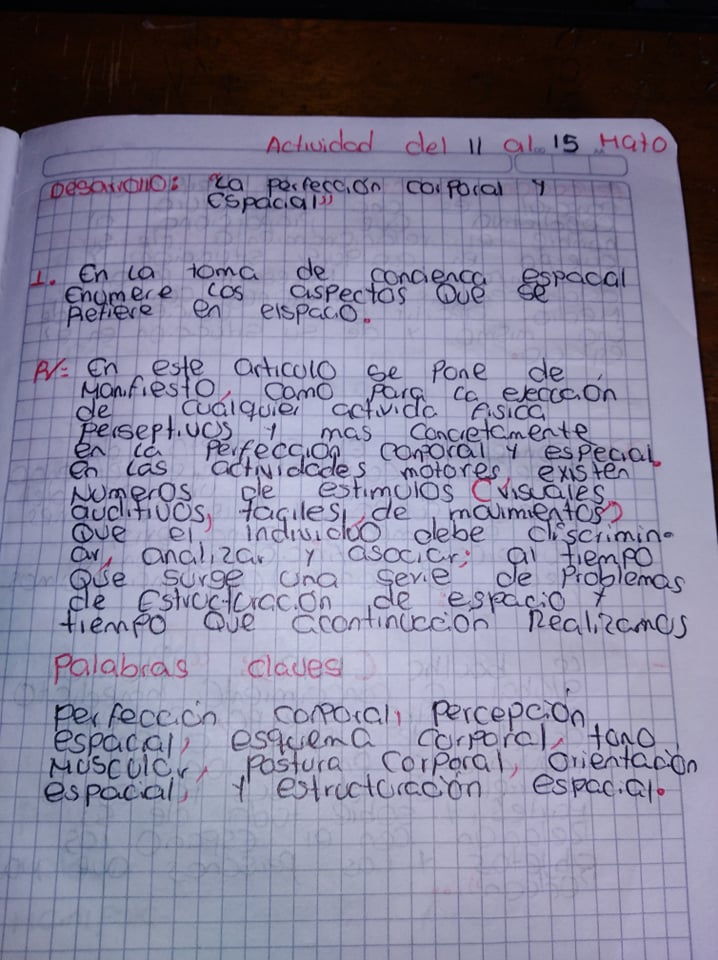 Actividad del 11 al 15 Mayo
Desarrollo: "La perfección corporal y
espacial"
1. En la toma de conciença espacial
Enumere los aspectos que se
Refiere en elspacio.
R/= En este articulo se pone de
Manifiesto, como para la ejecución
de cualquier activida Fisica,
perseptivos y mas concretamente
en la Perfección corporal y especial.
en las actividades motores existen
Numeros de estimulos (visuales,
auditivos, taciles, de movimientos)
Que el individuo debe discrimin-
ar, analizar y asociar; al tiempo
Que surge una serie de Problemas
de Estructuración de espacio y
tiempo Que acontinuación Realizamos
Palabras claves
perfección corporal, percepción
espacial, esquema corporal, tono
Muscular, Postura corporal, Orientación
espacial, y estructuración espacial.